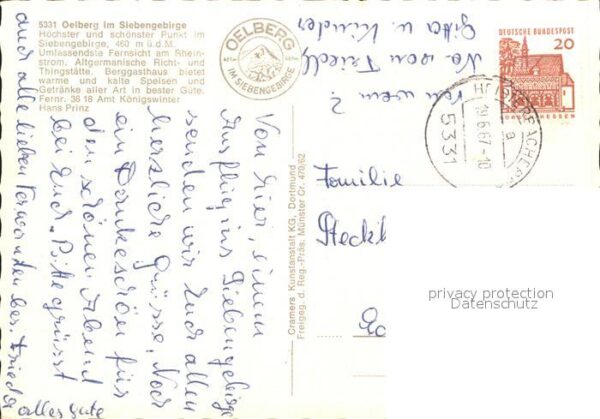 5331 Oelberg im Siebengebirge
Höchster und schönster Punkt im
Siebengebirge, 460 m ü.d.M.
Umfassendste Fernsicht am Rhein-
strom. Altgermanische Richt- und
Thingstätte. Berggasthaus bietet
warme und kalte Speisen und
Getränke aller Art in bester Güte.
Fernr. 36 18 Amt Königswinter
Hans Prinz
OELBERG
IM SIEBENGEBIRGE
Von hier, einem
Ausflug ins Siebengebirge
senden wir Euch allen
herzliche Grüsse. Noch
ein Dankeschön für
den schönen Abend
bei Euch. Bitte grüsst
auch alle lieben Verwandten bes. Frieda
alles gute
von wem?
Na von Friedl,
Gitta u. Kinder
Cramers Kunstanstalt KG, Dortmund
Freigeg. d. Reg.-Präs. Münster Cr. 479/62
DEUTSCHE BUNDESPOST
20
5331
19.6.67-10
a
Familie
Steckl
privacy protection
Datenschutz